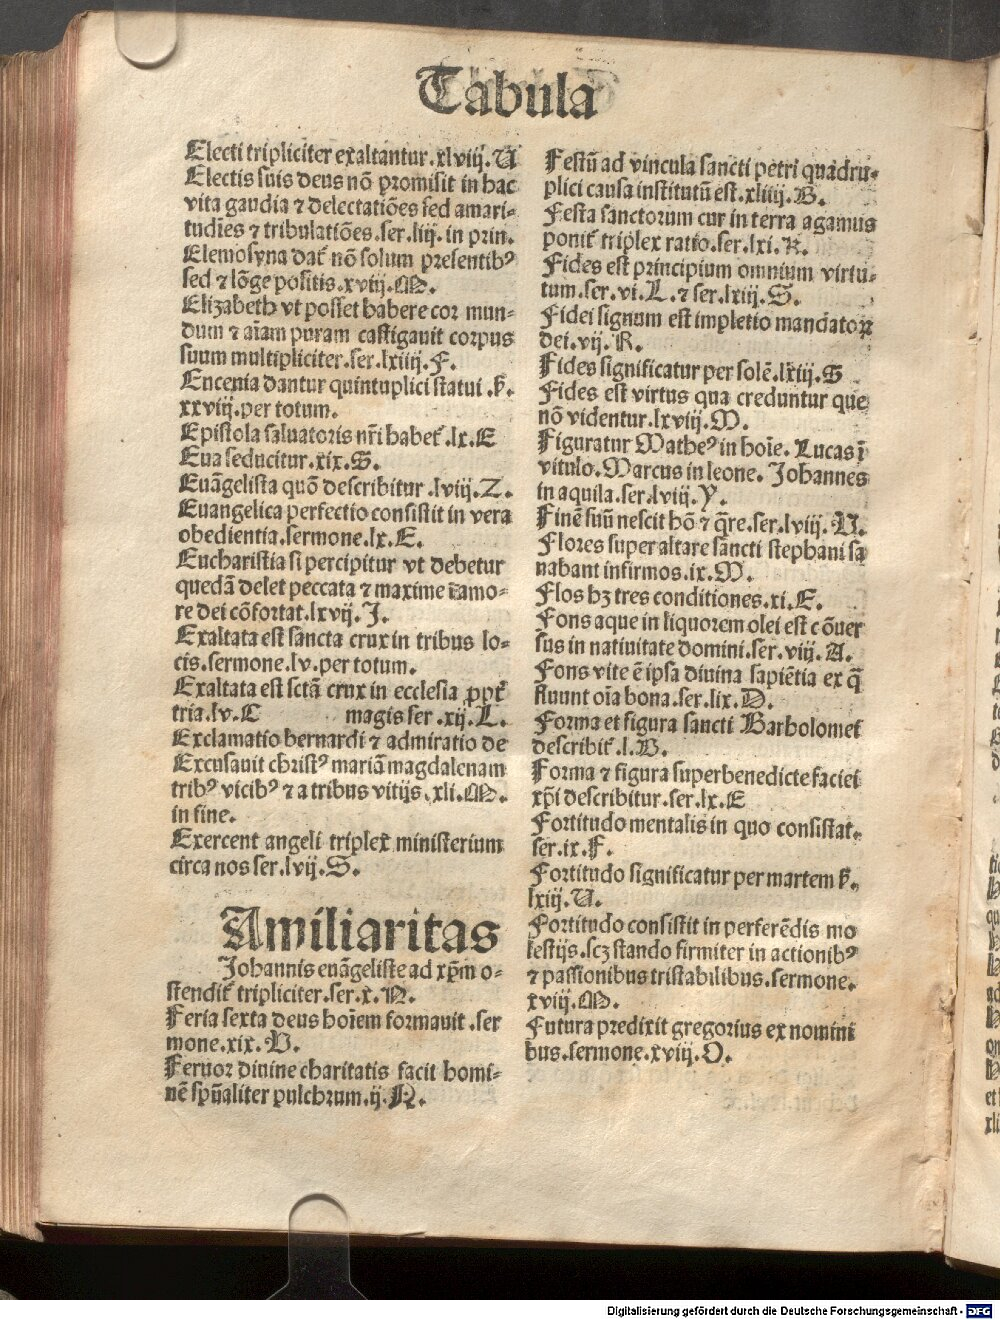 Tabula
Electi tripliciter exaltantur.xlviij.U
Electis suis deus nō promisit in hac
vita gaudia ⁊ delectatiōes sed amari-
tudīes ⁊ tribulatiōes.ser.liij. in prin.
Elemosyna dat̄ nō solum presentibꝰ
sed ⁊ lōge positis.xviij.M.
Elizabeth vt posset habere cor mun-
dum ⁊ aīam puram castigauit corpus
suum multipliciter.ser.lxiiij.F.
Encenia dantur quintuplici statui .s̄.
xxviij.per totum.
Epistola saluatoris nr̄i habet̄.lx.E
Eua seducitur.xix.S.
Euāgelista quō describitur.lviij.Z.
Euangelica perfectio consistit in vera
obedientia.sermone.lx.E.
Eucharistia si percipitur vt debetur
quedā delet peccata ⁊ maxime ī amo-
re dei cōfortat.lxvij.J.
Exaltata est sancta crux in tribus lo-
cis.sermone.lv.per totum.
Exaltata est sctā crux in ecclesia ꝓpt̄
tria.lv.C magis ser.xij.L.
Exclamatio bernardi ⁊ admiratio de
Excusauit christꝰ mariā magdalenam
tribꝰ vicibꝰ ⁊ a tribus vitijs.xli.M.
in fine.
Exercent angeli triplex ministerium
circa nos ser.lvij.S.
Amiliaritas
Johannis euāgeliste ad xp̄m o-
stendit̄ tripliciter.ser.x.N.
Feria sexta deus hoīem formauit.ser
mone.xix.V.
Feruor diuine charitatis facit homi-
nē spūaliter pulchrum.ij.N.
Festū ad vincula sancti petri quadru-
plici causa institutū est.xliiij.B.
Festa sanctorum cur in terra agamus
ponit̄ triplex ratio.ser.lxi.R.
Fides est principium omnium virtu-
tum.ser.vi.L.⁊ ser.lxiij.S.
Fidei signum est impletio mandatoꝝ
dei.vij.R.
Fides significatur per solē.lxiij.S
Fides est virtus qua creduntur que
nō videntur.lxviij.M.
Figuratur Matheꝰ in hoīe. Lucas ī
vitulo.Marcus in leone. Johannes
in aquila.ser.lviij.Y.
Finē suū nescit hō ⁊ q̄re.ser.lviij.U.
Flores super altare sancti stephani sa
nabant infirmos.ix.M.
Flos hꝫ tres conditiones.xi.E.
Fons aque in liquorem olei est cōuer
sus in natiuitate domini.ser.viij.A.
Fons vite ē ipsa diuina sapiētia ex q̄
fluunt oīa bona.ser.lix.D.
Forma et figura sancti Bartholomei
describit̄.l.B.
Forma ⁊ figura superbenedicte faciei
xp̄i describitur.ser.lx.E
Fortitudo mentalis in quo consistat.
ser.ix.F.
Fortitudo significatur per martem s̄.
lxiij.U.
Fortitudo consistit in perferēdis mo
lestijs.scꝫ stando firmiter in actionibꝰ
⁊ passionibus tristabilibus.sermone.
xviij.M.
Futura predixit gregorius ex nomini
bus.sermone.xviij.O.
Digitalisierung gefördert durch die Deutsche Forschungsgemeinschaft - DFG